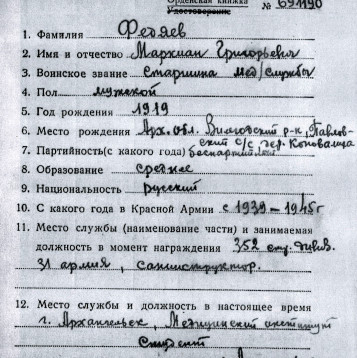 Орденская книжка
Удостоверение № 691190
1. Фамилия Федяев
2. Имя и отчество Маркиан Григорьевич
3. Воинское звание Старшина мед/службы
4. Пол мужской
5. Год рождения 1919
6. Место рождения Арх. обл. Вилегодский р-н, Павлов-
ский с/с, дер. Коновалиха
7. Партийность (с какого года) беспартийный
8. Образование среднее
9. Национальность русский
10. С какого года в Красной Армии с 1939 – 1945 г
11. Место службы (наименование части) и занимаемая
должность в момент награждения 352 стр. дивиз.
31 армия, санинструктор.
12. Место службы и должность в настоящее время
г. Архангельск, Медицинский институт
Студент